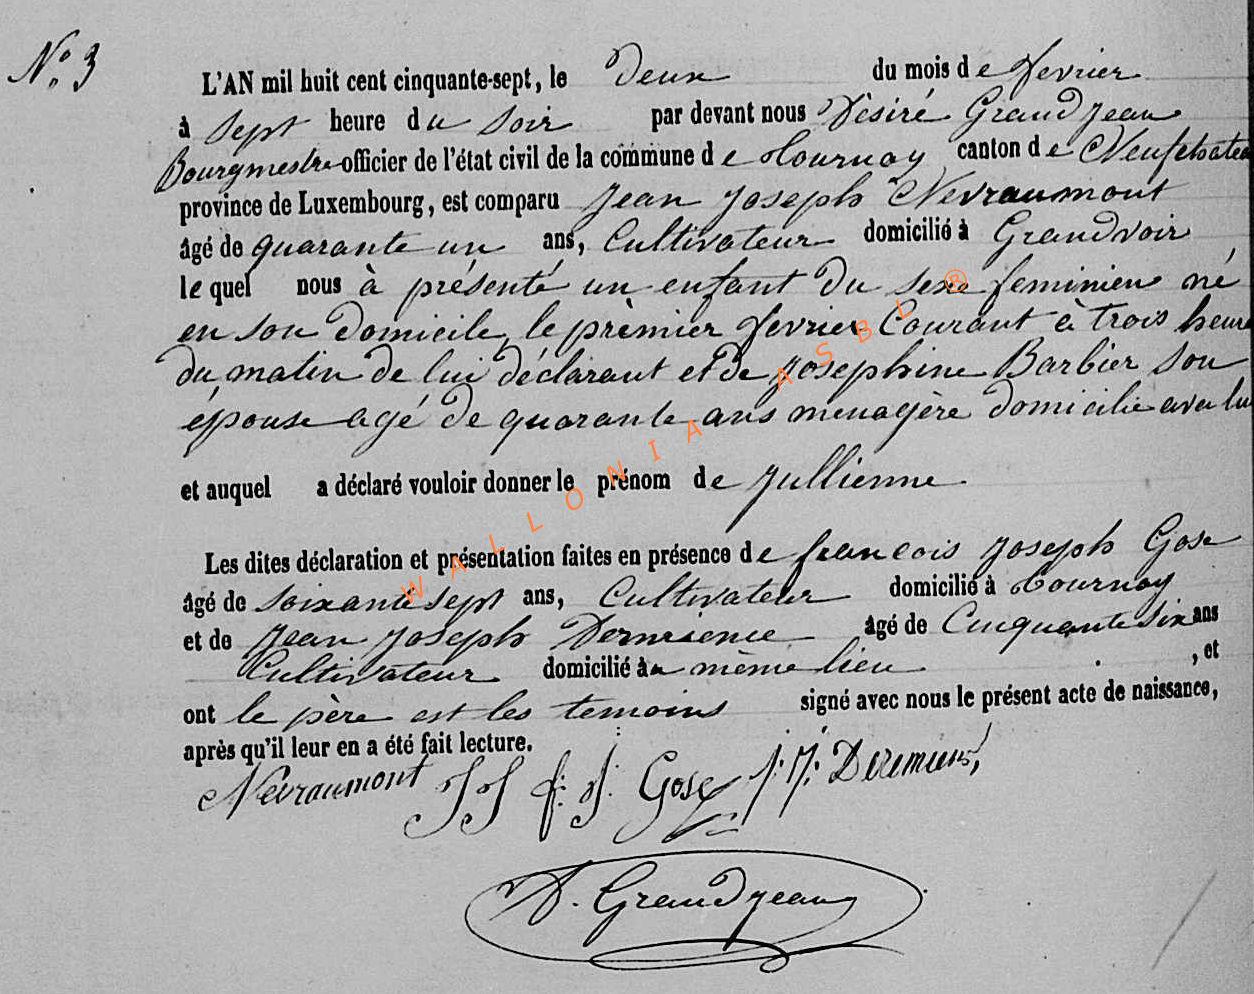 N.o 3
L'AN mil huit cent cinquante-sept, le Deux du mois de fevrier
à sept heure du soir par devant nous Dèsiré Grandjean
Bourgmestre officier de l'état civil de la commune de tournay canton de Neufchatea
province de Luxembourg, est comparu Jean Joseph Nevraumont
âgé de quarante un ans, Cultivateur domicilié à Grandvoir
le quel nous à présenté un enfant du sexe feminien né
en son domicile, le prèmier fevrier Courant à trois heure
du matin de lui déclarant et de Josephine Barbier son
épouse agé de quarante ans menagère domicilie avec lu
et auquel a déclaré vouloir donner le prénom de Jullienne
Les dites déclaration et présentation faites en présence de francois Joseph Gose
âgé de soixante sept ans, Cultivateur domicilié à Tournay
et de Jean Joseph Dermience âgé de Cinquante six ans
Cultivateur domicilié à même lieu , et
ont le père est les temoins signé avec nous le présent acte de naissance,
après qu'il leur en a été fait lecture.
Nevraumont JJ f. J. Gose J. J.
D. Grandjean
WALLONIA ASBL ®